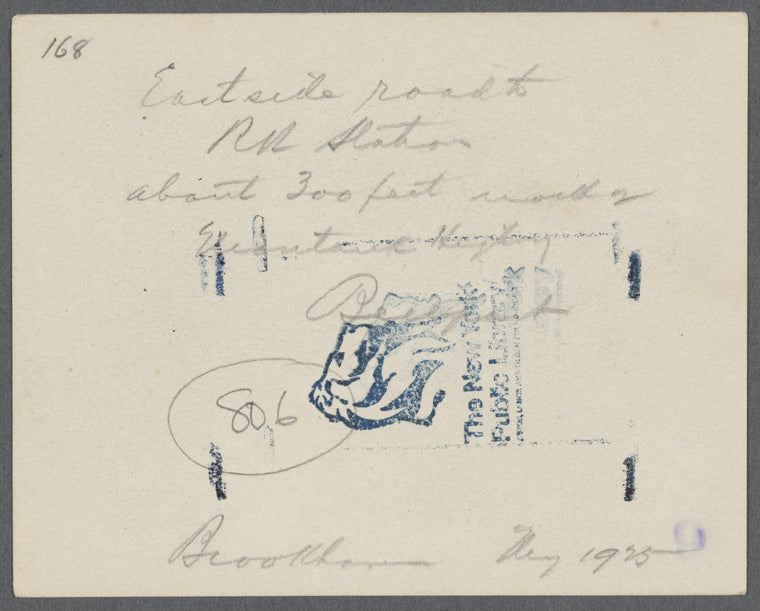 168
East side road to
RR Station
about 300 feet north of
Highway
Bellport
The New York
Public Library
80,6
Brookhaven 1925